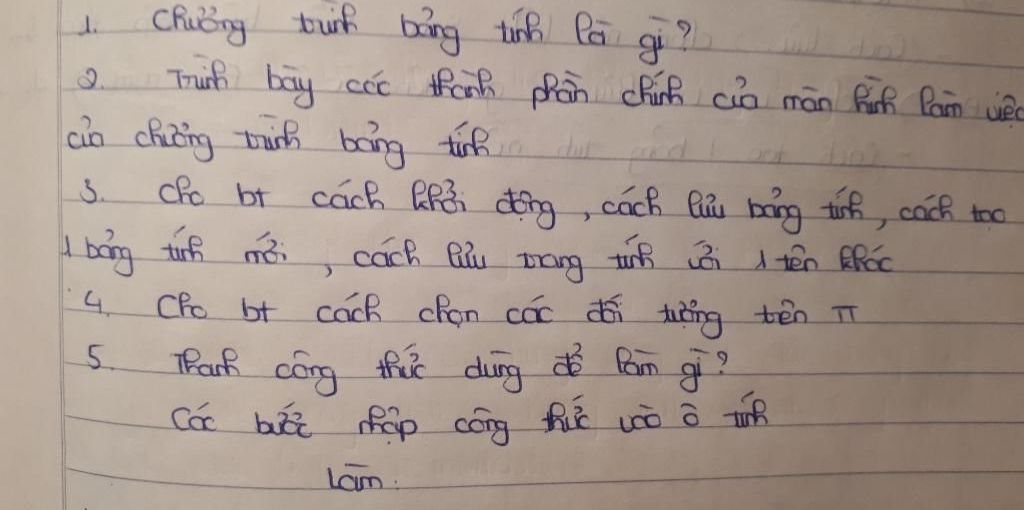 1. Chương trình bảng tính là gì?
2. Trình bày các thành phần chính của màn hình làm việc
của chương trình bảng tính
3. Cho bt cách khởi động, cách lưu bảng tính, cách tạo
1 bảng tính mới, cách lưu trang tính với 1 tên khác
4. Cho bt cách chọn các đối tượng trên π
5. Thanh công thức dùng để làm gì?
Các bước nhập công thức vào ô tính
Làm.